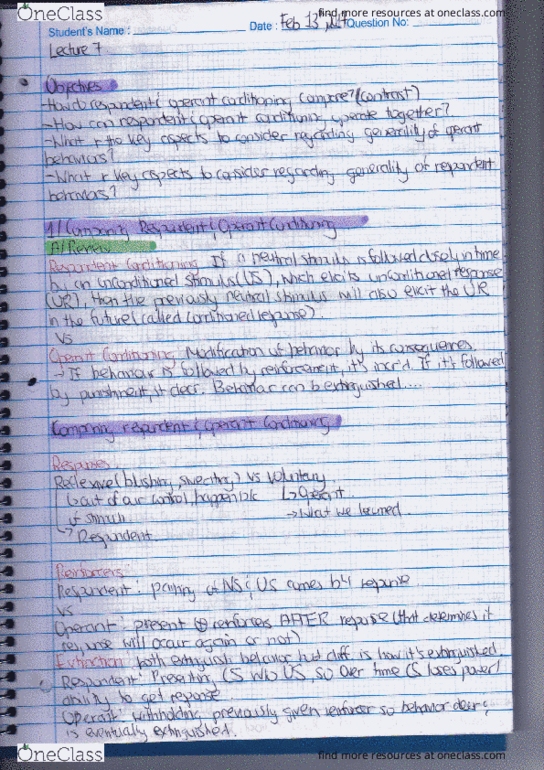 OneClass
find more resources at oneclass.com
Student's Name :
Date : Feb 13
Question No:
Lecture 7
Objectives
-How do respondent & operant conditioning compare? (contrast)
-How can respondent & operant conditioning operate together?
-What r the key aspects to consider regarding generality of operant
behaviors?
-What r key aspects to consider regarding generality of respondent
behaviors?
1/ Comparing Respondent & Operant Conditioning
A/ Review
Respondent Conditioning If a neutral stimulus is followed closely in time
by an unconditioned stimulus (US), which elicits unconditioned response
(UR), then the previously neutral stimulus will also elicit the UR
in the future (called conditioned response)
VS
Operant Conditioning Modification of behavior by its consequences
→ If behaviour is followed by reinforcement, it's incr'd. If it's followed
by punishment, it decr. Behavior can be extinguished....
Comparing respondent & operant conditioning
Responses
Reflexive (blushing, sweating) VS Voluntary
↳ out of our control, happen b/c ↳ Operant
of stimuli → What we learned
↳ Respondent
Reinforcers:
Respondent: pairing of NS & US comes b4 response
VS
Operant: present ⊕ reinforcers AFTER response (that determines if
response will occur again or not)
Extinction both extinguish behavior but diff. is how it's extinguished
Respondent: Presenting CS w/o US, so over time CS loses power/
ability to get response
Operant: withholding previously given reinforcer so behavior decr &
is eventually extinguished.
OneClass
find more resources at oneclass.com